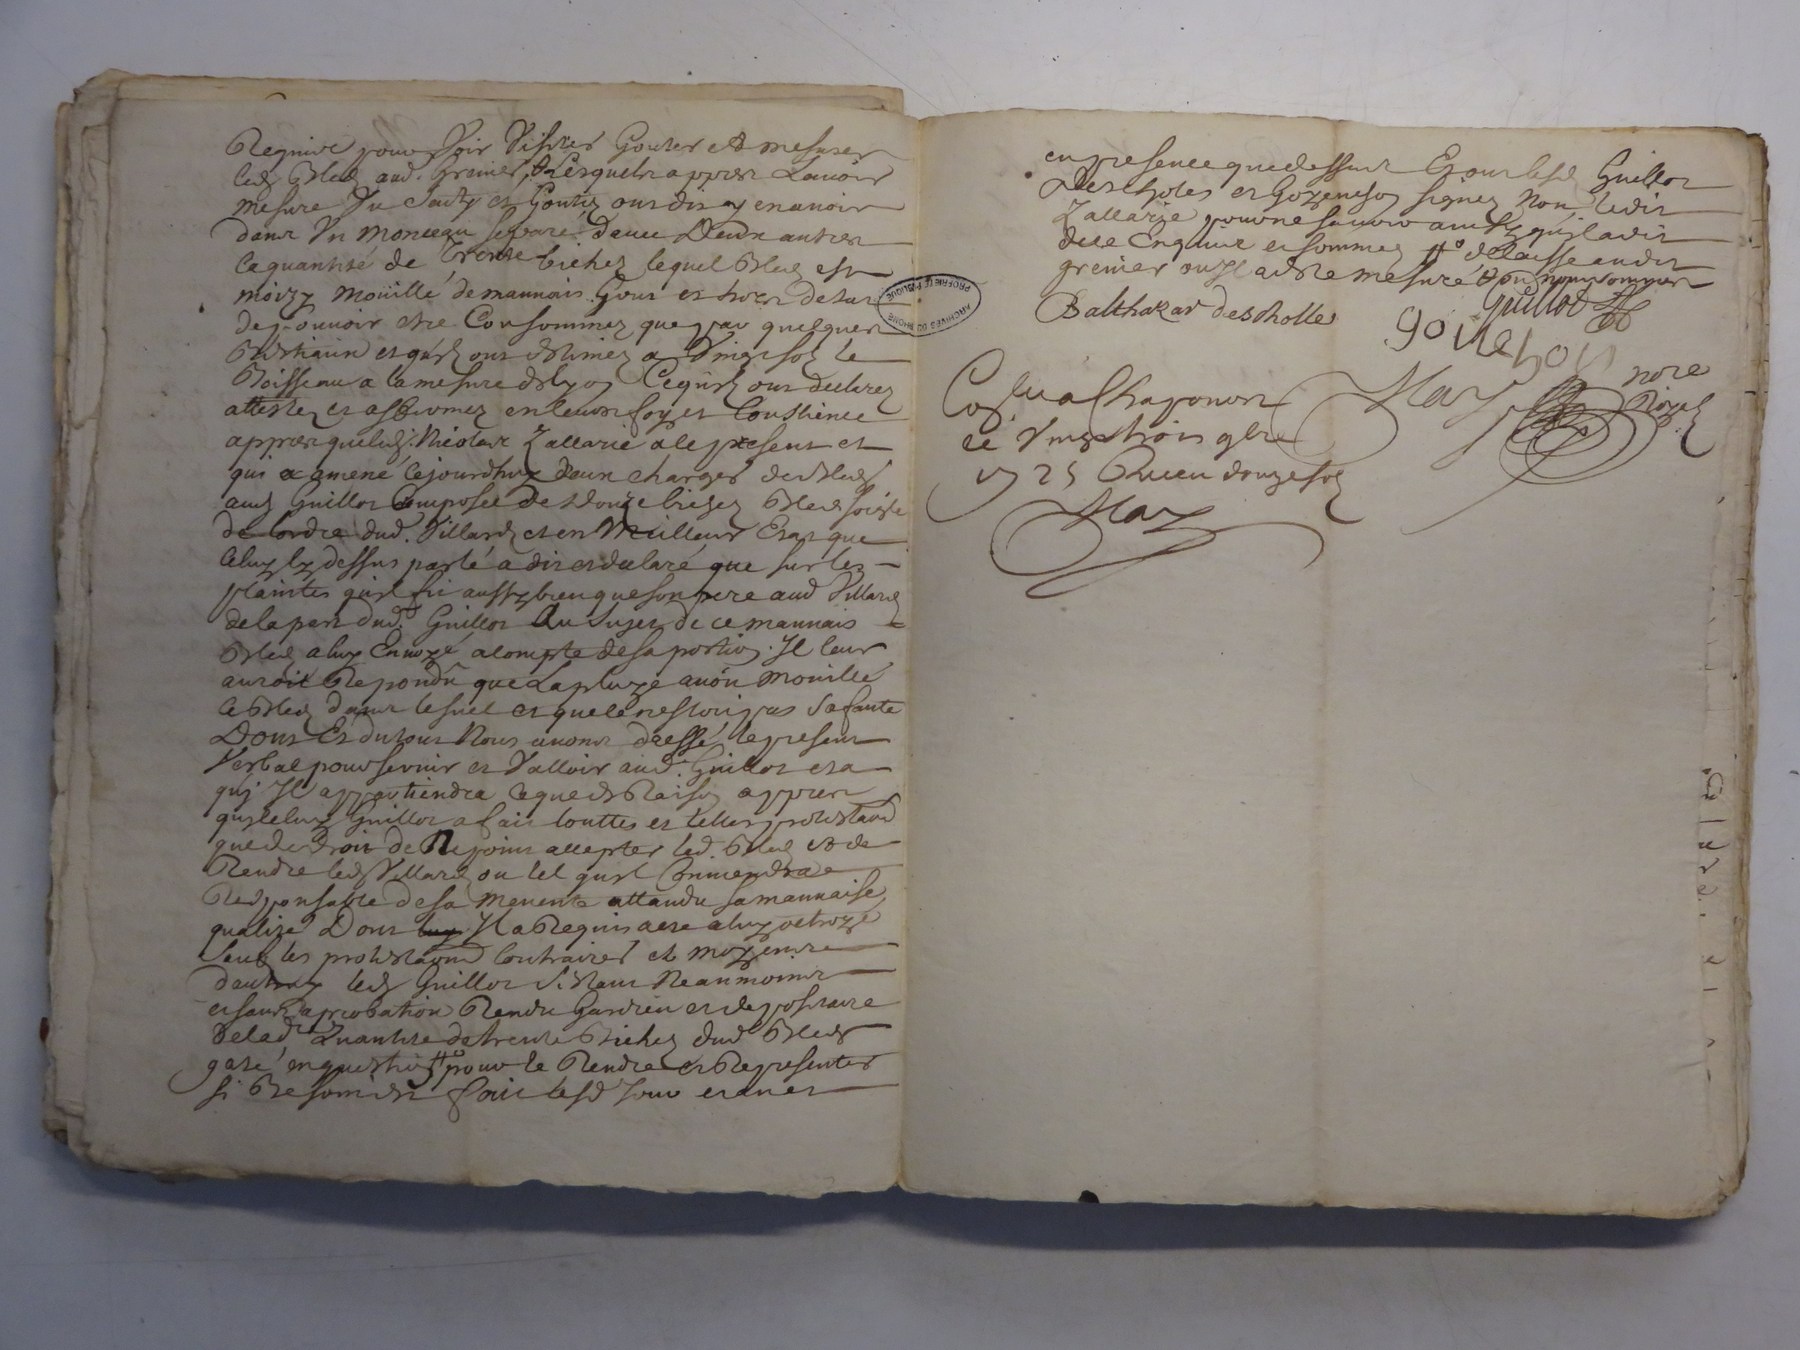 Requive pour Voir Visiter Gouter et mesurer
led Bled aud. Grenier, Lesquels appres Lavoir
mesuré Vu Senty et Goutez ont dis y en avoir
dans Un monceau separé davec Deux autres
la quantité de trente bichez lequel Bled est
moizy mouillé de mauvais Gout et hors destat
de pouvoir etre Consommez que par quelques
Bestiaux et quils ont estimez a Vingt sol le
Boisseau a la mesure de Lyon Ce quils ont declarez
attestez et affirmez en leurs foy et Conscience
appres que led. Nicolas Zallarie a le present et
qui a amené cejourdhuy deux charges de Bled
aud Guillot Composée de douze biches Bled soigle
de lordre dud. Villard et en Meilleur Etat que
celuy cy dessus parlé a dis et declaré que sur les
plaintes quil fit aussy bien que son pere aud Villard
de la part dud. Guillot Au Sujet de ce mauvais
Bled a luy Envoyé acompte de sa portion. Il leur
auroit Repondu que La pluye avoit Mouillé
le Bled dans lesuel et que ce nestoit pas sa faute
Dont Et du tout Nous avons dressé le present
Verbal pour servir et Valloir aud. Guillot et a
qui Il appartiendra ce que de Raison appres
que celuy Guillot a fait touttes et telles protestaons
que de droit de Ne point accepter led. Bled et de
Rendre led Villard ou tel quil Conviendra
Responsable de sa Mevente attandu sa mauvaise
qualité Dont Il a Requis acte a luy octroyé
Sauf les protestaons Contraires et moyenne
dautruy led Guillot sestant Neanmoins
et sans aprobation Rendu Gardien et depositaire
de lad. Quantité de trente Bichez dud Bled
gaté en question pour le Rendre et Representer
si Besoin est fait lesd jour et an et
en presence que dessus Et ont lesd Guillot
Descholes et Goyeneson signez Non ledit
Zallarye pour ne scavoir ainsy quil a dit
de ce Enquive et sommez delaisse audit
grenier ou Il a esté mesuré
Guillot
Balthazar descholles
May nore
Royal
Con a Chaponon
ce Vingt trois 9bre
1725 Receu douze sol
May
ARCHIVES DU RHONE
PROPRIETE PUBLIQUE